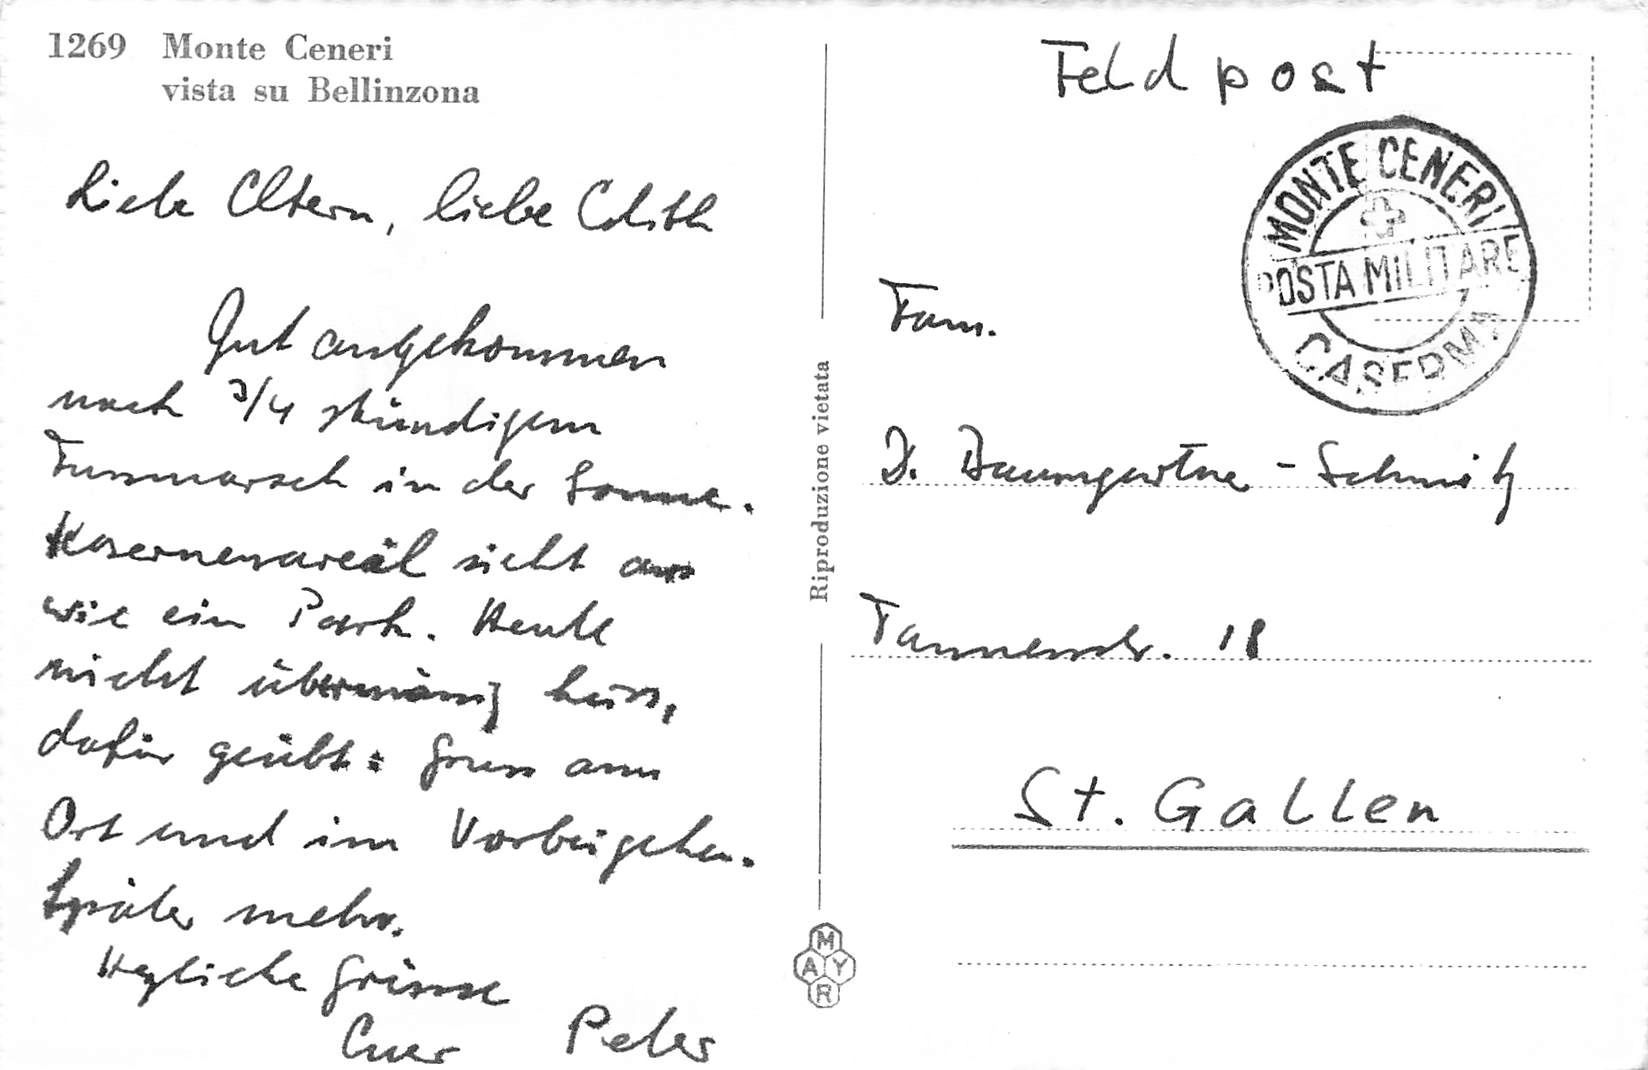 1269 Monte Ceneri
vista su Bellinzona
Liebe Eltern, liebe Edith
Gut angekommen
nach 3/4 stündigem
Fussmarsch in der Sonne.
Kasernenareal sieht aus
wie ein Park. Heute
nicht übermässig heiss,
dafür geübt: Gruss am
Ort und im Vorbeigehen.
Später mehr.
Herzliche Grüsse
Euer Peter
Riproduzione vietata
MAYR
Feldpost
MONTE CENERI
POSTA MILITARE
CASERMA
Fam.
D. Baumgartner-Schmitz
Tannenstr. 18
St. Gallen